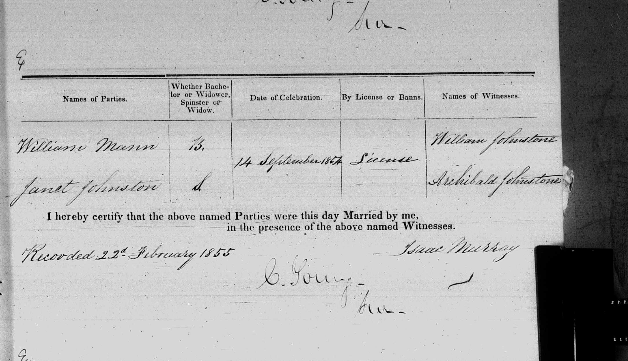 Names of Parties.
Whether Bache-
lor or Widower,
Spinster or
Widow.
Date of Celebration.
By License or Banns.
Names of Witnesses.
William Mann
B.
14 September 1854
License
William Johnstone
Janet Johnston
S
Archibald Johnstone
I hereby certify that the above named Parties were this day Married by me,
in the presence of the above named Witnesses.
Recorded 22d February 1855
Isaac Murray
C. Young